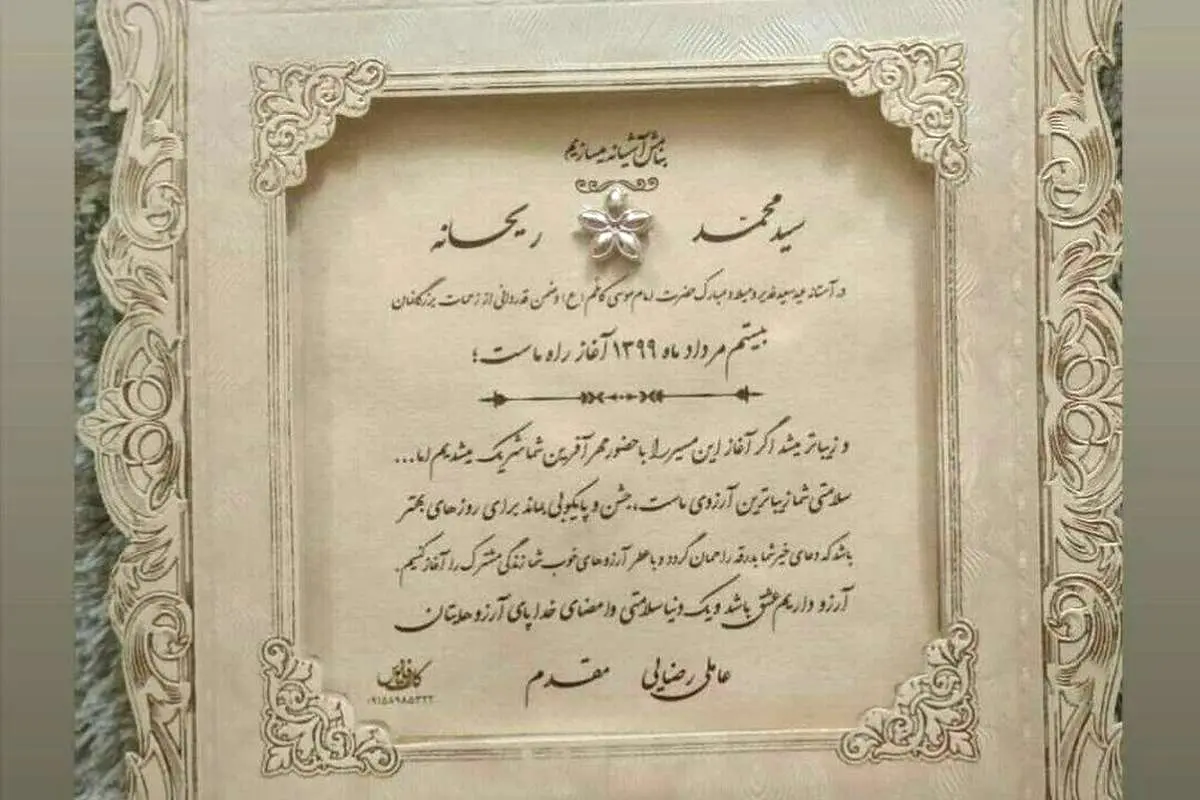 بنامش آشیانه میسازیم
سید محمد ریحانه
در آستانه عید سعید غدیر و میلاد مبارک حضرت امام موسی کاظم (ع) و ضمن قدردانی از زحمات بزرگانمان
بیستم مرداد ماه ۱۳۹۹ آغاز راه ماست؛
و زیباتر میشد اگر آغاز این مسیر را با حضور مهر آفرین شما شریک میشدیم اما...
سلامتی شما زیباترین آرزوی ماست، جشن و پایکوبی بماند برای روزهای بهتر
باشد که دعای خیر شما بدرقه راهمان گردد و با عطر آرزوهای خوب شما زندگی مشترک را آغاز کنیم.
آرزو داریم عشق باشد و یک دنیا سلامتی و امضای خدا پای آرزوهایتان
عاملی رضایی مقدم